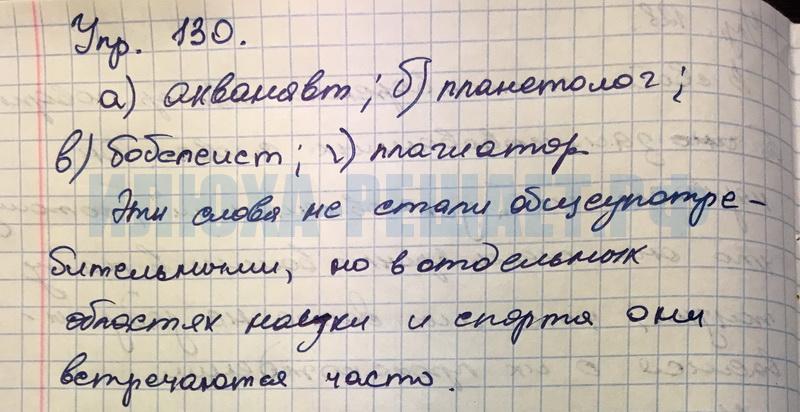 Упр. 130.
а) акванавт; б) планетолог;
в) бобслеист; г) плагиатор
ИЛЮХА РЕШАЕТ.РФ
Эти слова не стали общеупотре-
бительными, но в отдельных
областях науки и спорта они
встречаются часто.